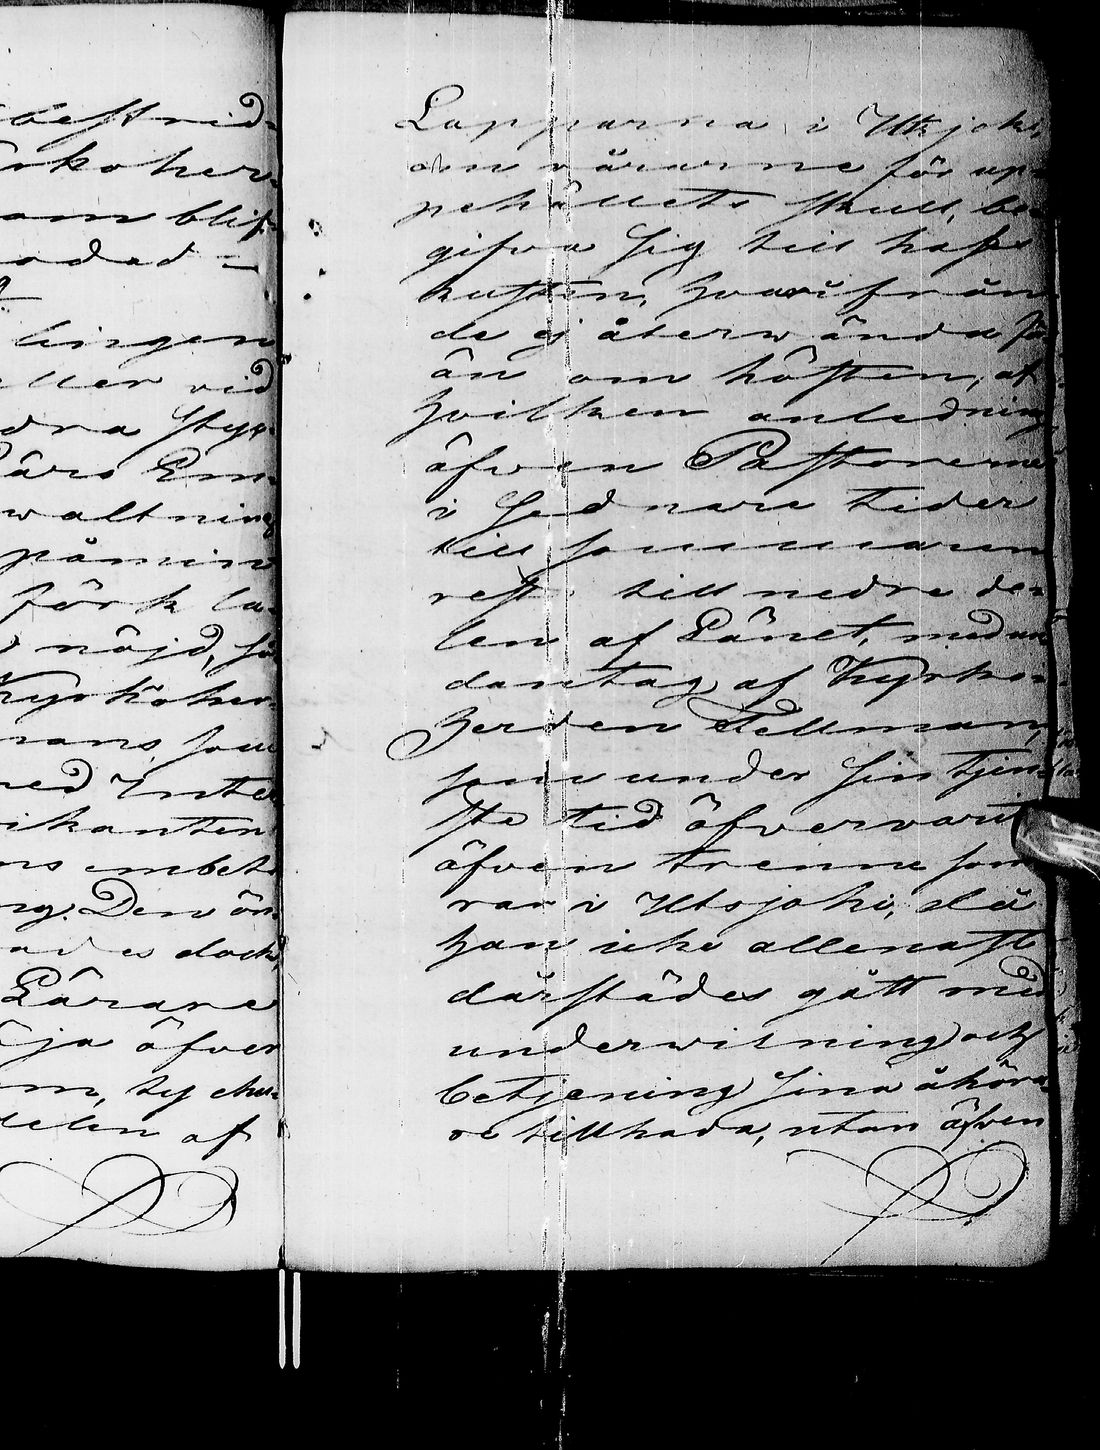 bestrid-
rkoher-
om blif-
odad -
lingen
ller vid
dra styr-
Lärs Em-
waltning
påmin
förk la-
nöjd, så
Kyrkoher-
mans, som
ned Inte
ikanten
ns embets
ng. Den ön-
ades dock,
Lärare
öja öfver
m, ty ehu-
delen af
Lapparna i Utsjoki
om vårarne för up-
pehällets skull, be-
gifva sig till hafs
kusten, hvarifrån
de ej återwända för
än om hösten, af
hvilken anledning
äfwen Pastorerne
i sednare tider
till sommaren
rest till nedre de-
len af Länet, med un-
dantag af Kyrko-
herden Fellman,
som under sin tjen-
ste tid öfvervarit
äfven trenne som-
rar i Utsjoki, då
han icke allenast
därstädes gått med
underwisning och
betjening sina åhöra-
re tillhada, utan äfven